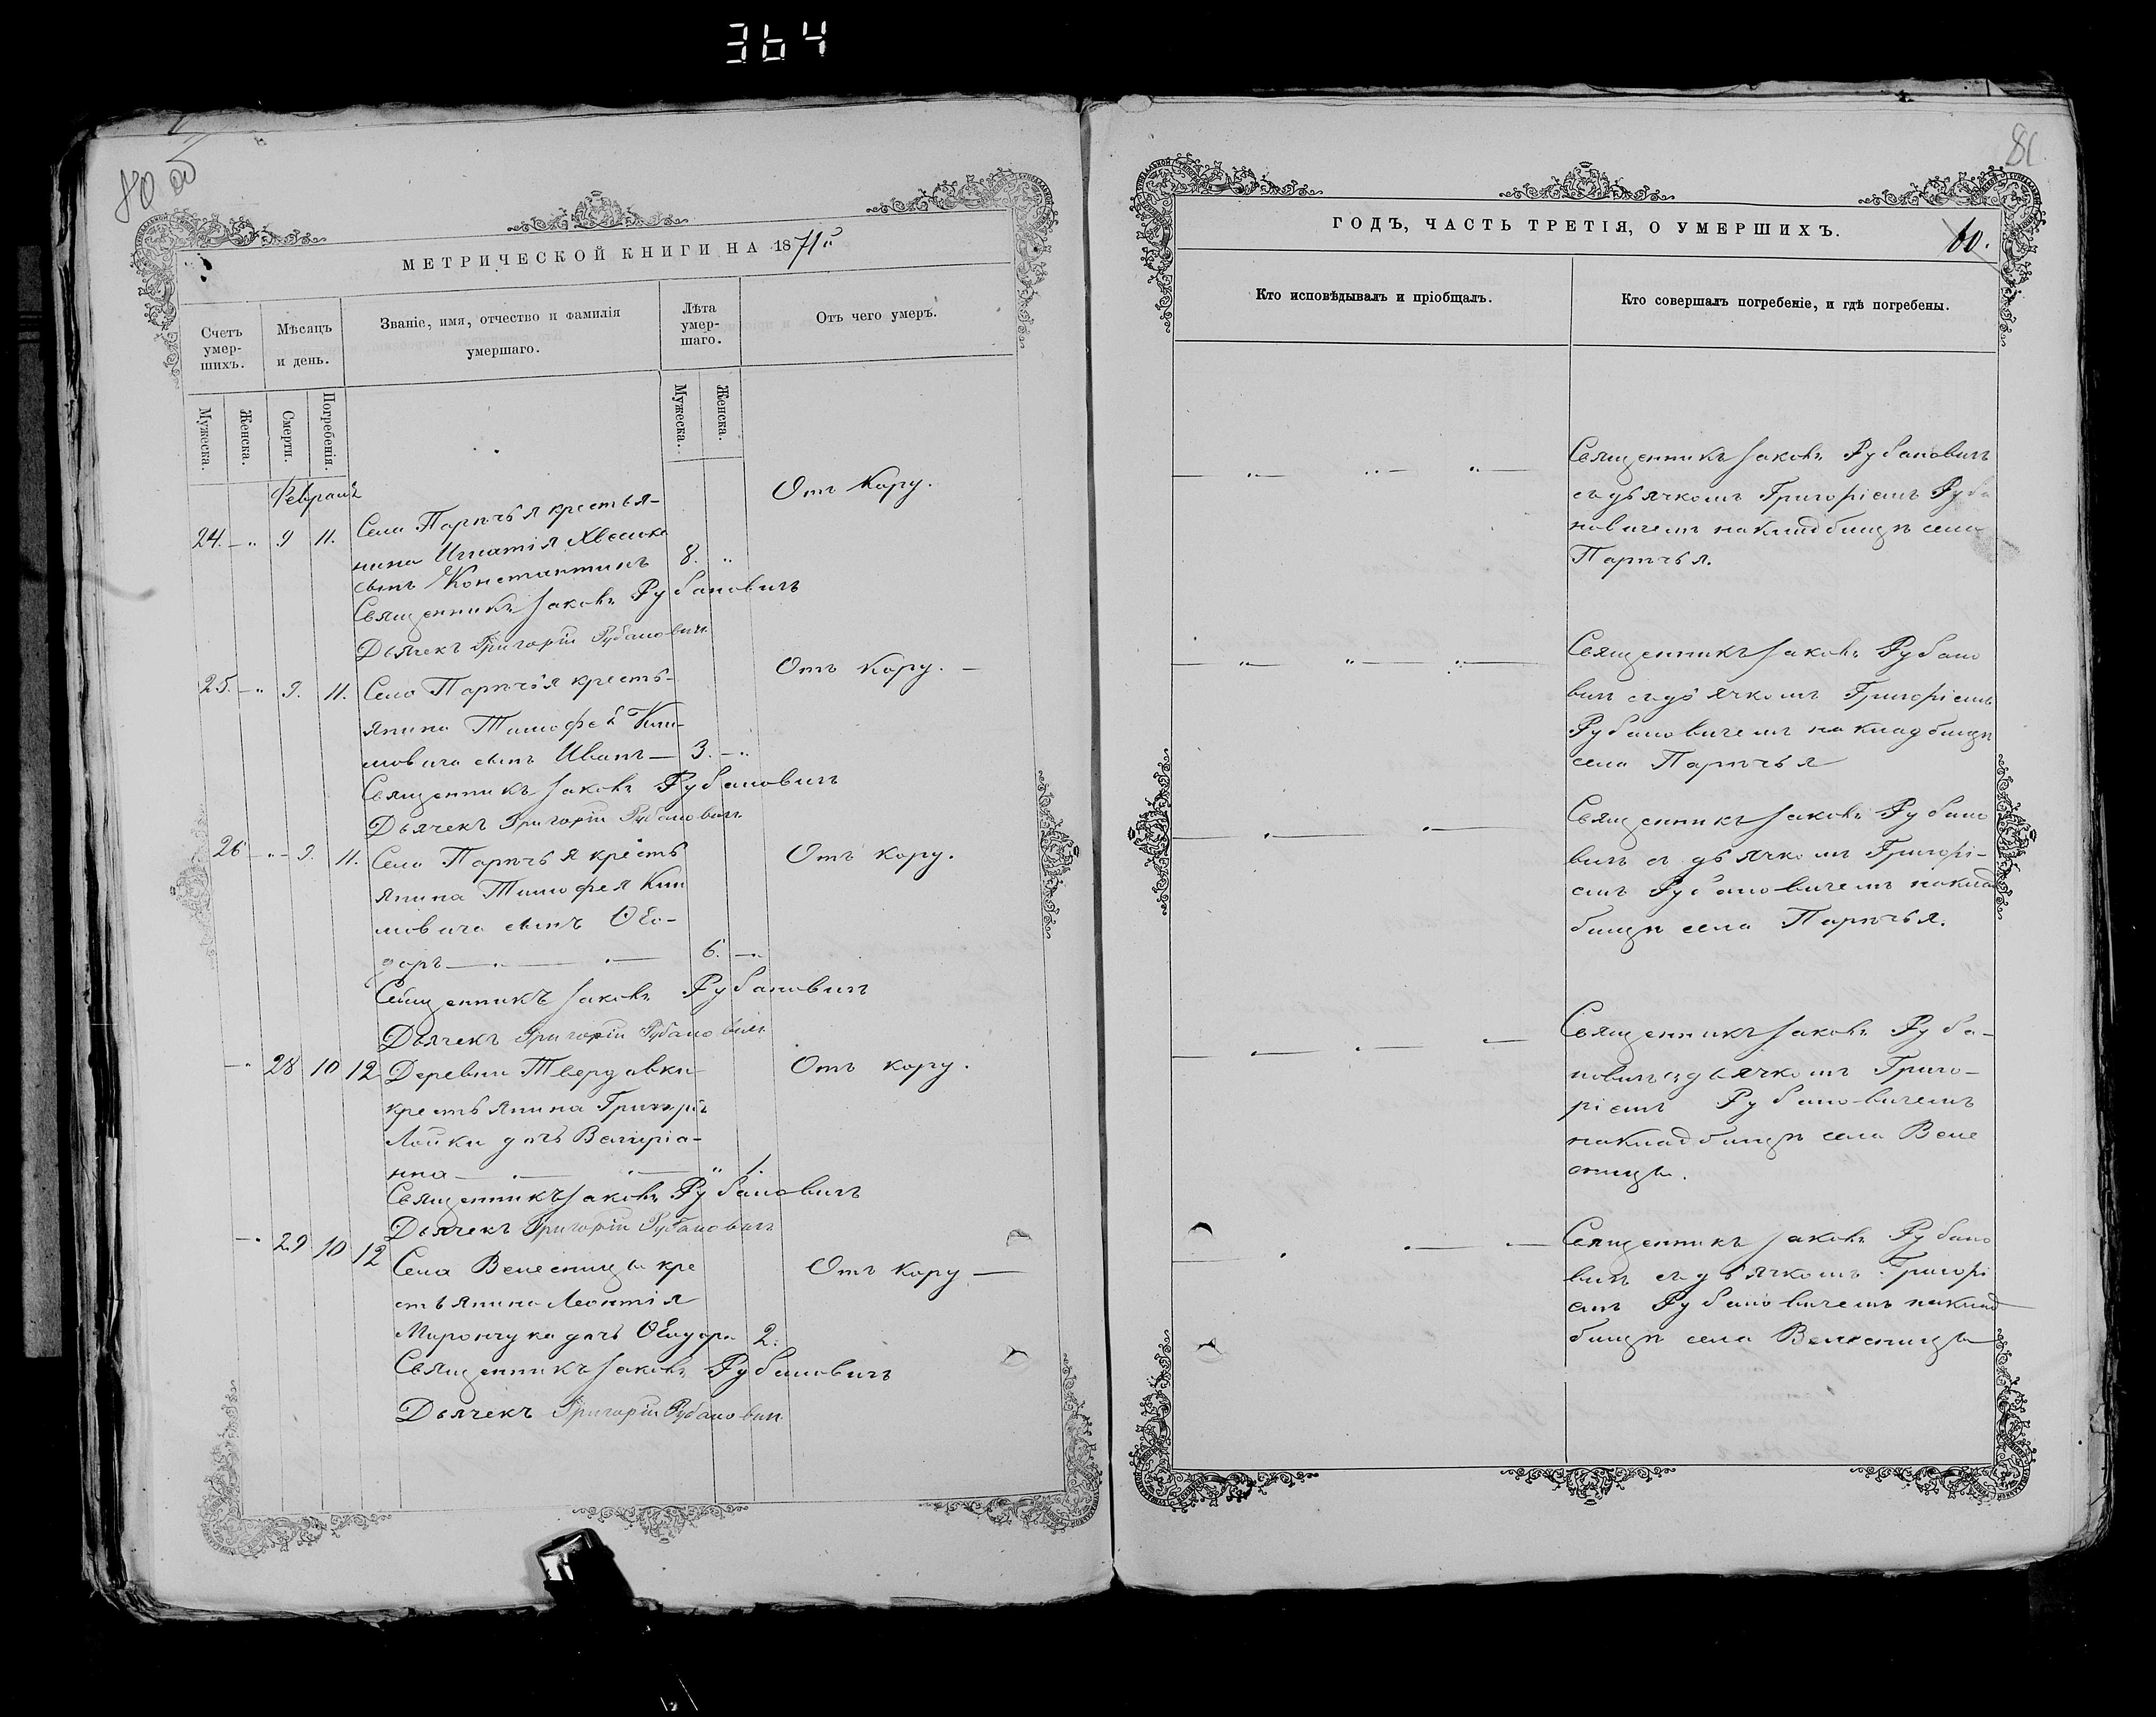 364
80 об
МЕТРИЧЕСКОЙ КНИГИ НА 1871й
Счетъ умер-шихъ.
Мѣсяцъ и день.
Званіе, имя, отчество и фамилія умершаго.
Лѣта умер-шаго.
Отъ чего умеръ.
Мужеска.
Женска.
Смерти.
Погребенія.
Мужеска.
Женска.
Февраль
24. — „ 9 11. Села Парѣчья крестья- Отъ Кору.
нина Игнатія
сынъ Константинъ 8. „
Священникъ Іаковъ Рубановичъ
Дьячекъ Григорій Рубановичъ
25. — „ 9. 11. Села Парѣчья кресть- Отъ Кору. —
янина Тимофея Кли-
мовича сынъ Иванъ — 3. — „
Священникъ Іаковъ Рубановичъ
Дьячекъ Григорій Рубановичъ
26 — „ — 9. 11. Села Парѣчья кресть Отъ кору.
янина Тимофея Кли
мовича сынъ Ѳео-
доръ — 6. — „
Священникъ Іаковъ Рубановичъ
Дьячекъ Григорій Рубановичъ
— „ 28 10 12 Деревни Твердовки Отъ кору.
крестьянина Григорія
Лойки дочь Валеріа-
нна — „ 1.
Священникъ Іаковъ Рубановичъ
Дьячекъ Григорій Рубановичъ
— „ 29 10 12 Села Велесницы кре Отъ Кору —
стьянина Леонтія
Мирончука дочь Ѳеодора 2.
Священникъ Іаковъ Рубановичъ
Дьячекъ Григорій Рубановичъ
81.
ГОДЪ, ЧАСТЬ ТРЕТІЯ, О УМЕРШИХЪ.
60.
Кто исповѣдывалъ и пріобщалъ.
Кто совершалъ погребеніе, и гдѣ погребены.
Священникъ Іаковъ Рубановичъ
съ дьячкомъ Григоріемъ Руба
новичемъ на кладбищѣ села
Парѣчья.
Священникъ Іаковъ Рубано
вичъ съ дьячкомъ Григоріемъ
Рубановичемъ на кладбищѣ
села Парѣчья
Священникъ Іаковъ Рубано
вичъ съ дьячкомъ Григорі-
емъ Рубановичемъ на клад
бищѣ села Парѣчья.
Священникъ Іаковъ Руба-
новичъ съ дьячкомъ Григо-
ріемъ Рубановичемъ
на кладбищѣ села Веле
сницы.
Священникъ Іаковъ Рубано
вичъ съ дьячкомъ Григорі
емъ Рубановичемъ на клад
бищѣ села Велесницы